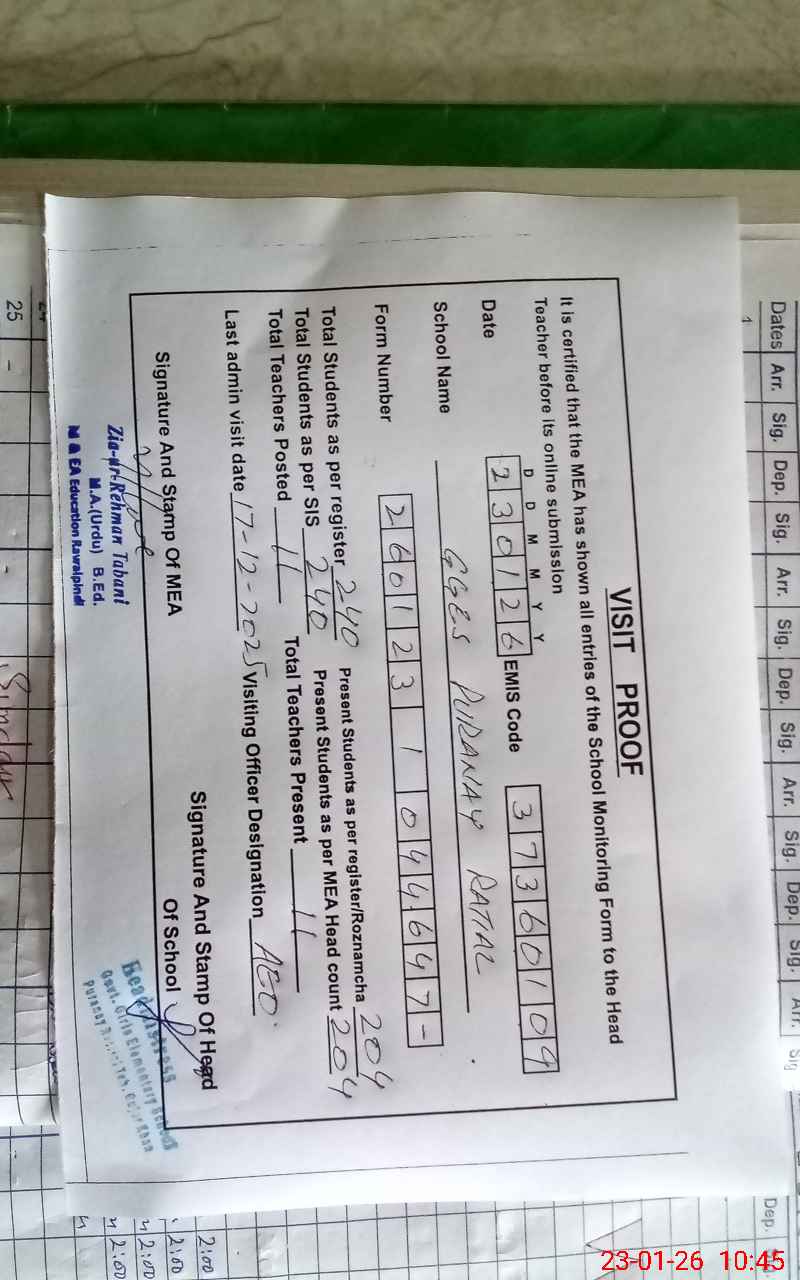 VISIT PROOF
It is certified that the MEA has shown all entries of the School Monitoring Form to the Head
Teacher before its online submission
D D M M Y Y
Date 230126 EMIS Code 37360109
School Name GGES PURANAY RATIAL
Form Number 260123 1 044647-
Total Students as per register 240 Present Students as per register/Roznamcha 204
Total Students as per SIS 240 Present Students as per MEA Head count 204
Total Teachers Posted 11 Total Teachers Present 11
Last admin visit date 17-12-2025 Visiting Officer Designation AEO.
Signature And Stamp Of MEA
Signature And Stamp Of Head
Of School
Zia-ur-Rehman Tabani
M.A.(Urdu) B.Ed.
M & EA Education Rawalpindi
Headmistress
Govt. Girls Elementary School
Dates Arr. Sig. Dep. Sig. Arr. Sig. Dep. Sig. Arr. Sig. Dep. Sig. Arr. Sig
Dep.
1
25 - -
2:00
2:00
2:00
2:00
23-01-26 10:45